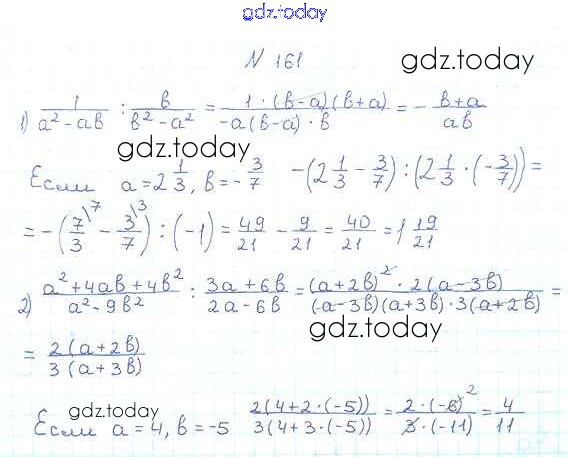 gdz.today
N 161
gdz.today
1) 1/(a² - ab) : b/(b² - a²) = (1 · (b - a)(b + a))/(-a(b - a) · b) = - (b + a)/(ab)
gdz.today
Если a = 2 1/3, b = - 3/7 -(2 1/3 - 3/7) : (2 1/3 · (- 3/7)) =
= -(7/3 \7 - 3/7 \3) : (-1) = 49/21 - 9/21 = 40/21 = 1 19/21
2) (a² + 4ab + 4b²)/(a² - 9b²) : (3a + 6b)/(2a - 6b) = ((a + 2b)² · 2(a - 3b))/((a - 3b)(a + 3b) · 3(a + 2b)) =
gdz.today
= 2(a + 2b)/3(a + 3b)
gdz.today
Если a = 4, b = -5 2(4 + 2 · (-5))/3(4 + 3 · (-5)) = 2 · (-6) 2/3 · (-11) = 4/11